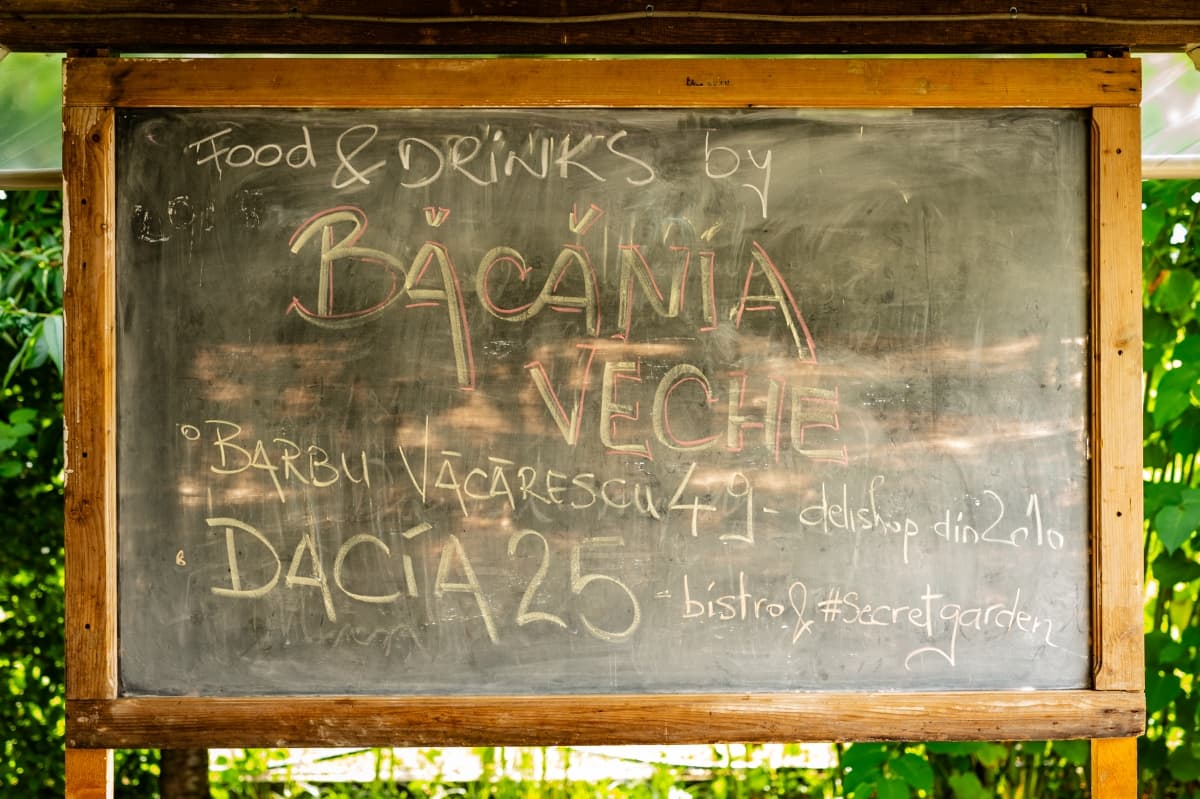 Food & DRINKS by
BĂCĂNIA
VECHE
BARBU VĂCĂRESCU 49 - delishop din 2010
DACIA 25 - bistro & #Secretgarden